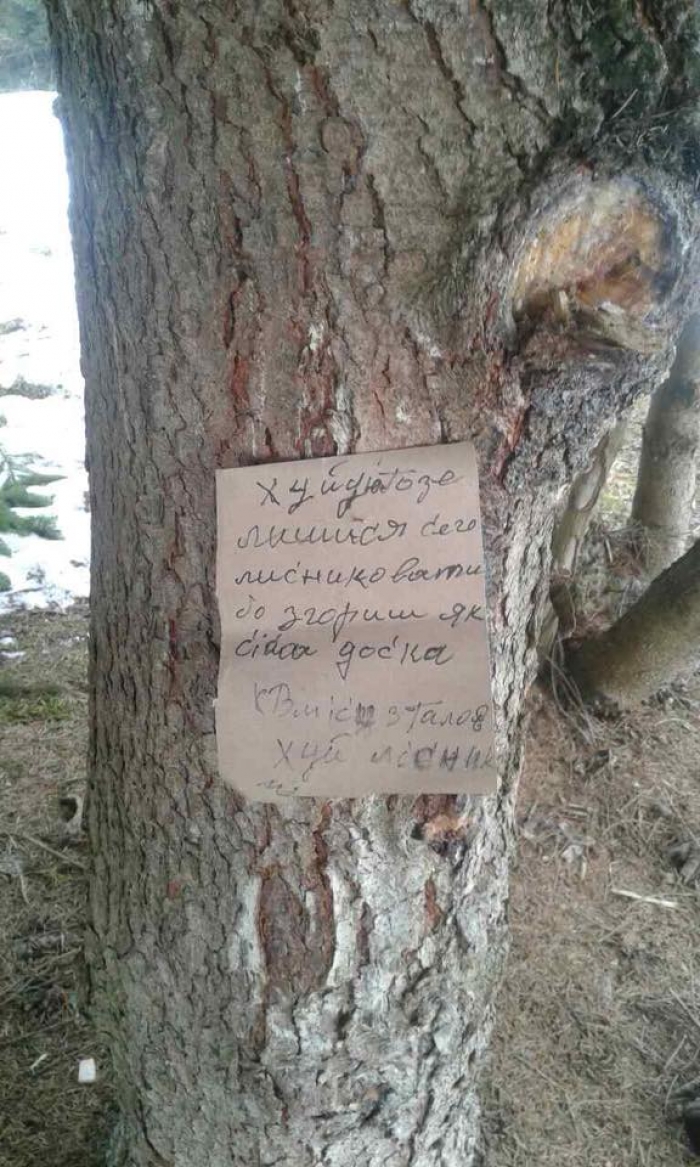 хуйутозе
лишися сего
лисниковати
бо згориш як
сіваа доска
вліси з талов
хуй лісник